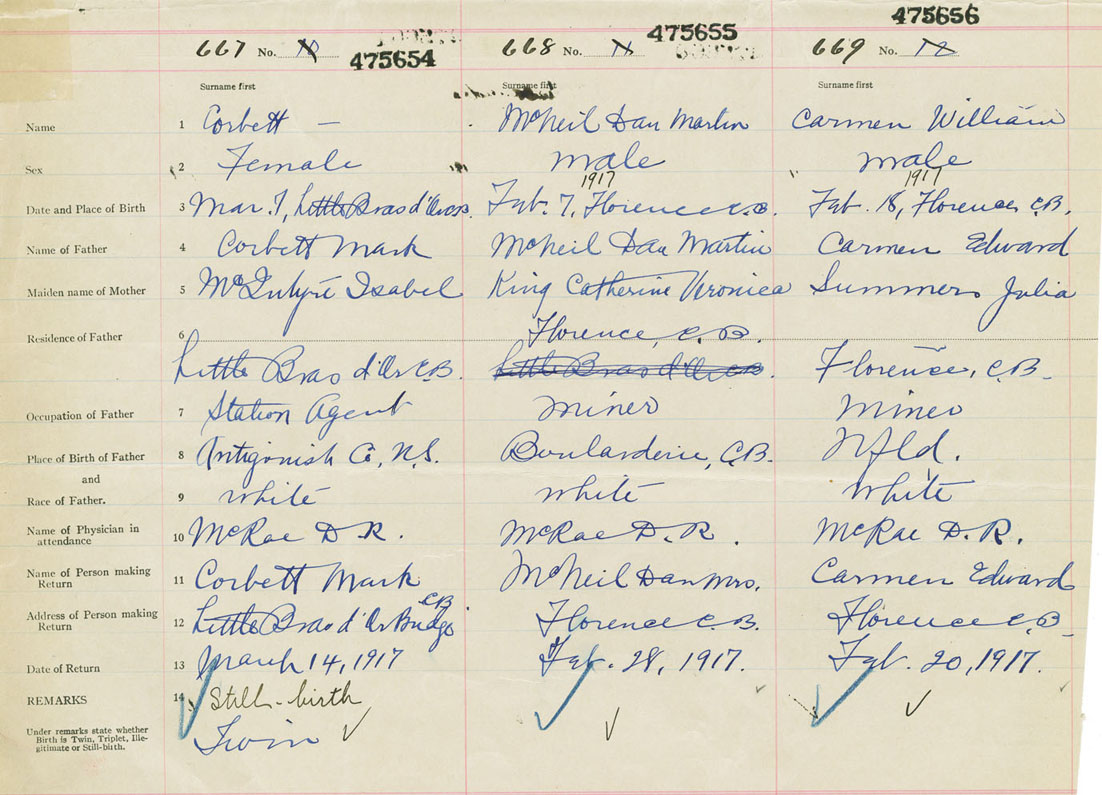 475656
475655
667 No. 10 475654 668 No. 11 669 No. 12
Surname first Surname first Surname first
Name 1 Corbett — McNeil Dan Martin Carmen William
Sex 2 Female male male
1917 1917
Date and Place of Birth 3 Mar. 7, Little Bras d'Or C.B. Feb. 7, Florence C.B. Feb. 18, Florence, C.B.
Name of Father 4 Corbett Mark McNeil Dan Martin Carmen Edward
Maiden name of Mother 5 McIntyre Isabel King Catherine Veronica Summers Julia
Residence of Father 6 Florence, C.B.
Little Bras d'Or C.B. Little Bras d'Or C.B. Florence, C.B.
Occupation of Father 7 Station Agent miner miner
Place of Birth of Father 8 Antigonish Co, N.S. Boularderie, C.B. Nfld.
and
Race of Father. 9 white white white
Name of Physician in
attendance 10 McRae D.R. McRae D.R. McRae D.R.
Name of Person making
Return 11 Corbett Mark McNeil Dan Mrs. Carmen Edward
C.B.
Address of Person making
Return 12 Little Bras d'Or Bridge Florence C.B. Florence C.B.
Date of Return 13 March 14, 1917 Feb. 28, 1917. Feb. 20, 1917.
REMARKS 14 Still-birth
Under remarks state whether
Birth is Twin, Triplet, Ille-
gitimate or Still-birth.
Twin